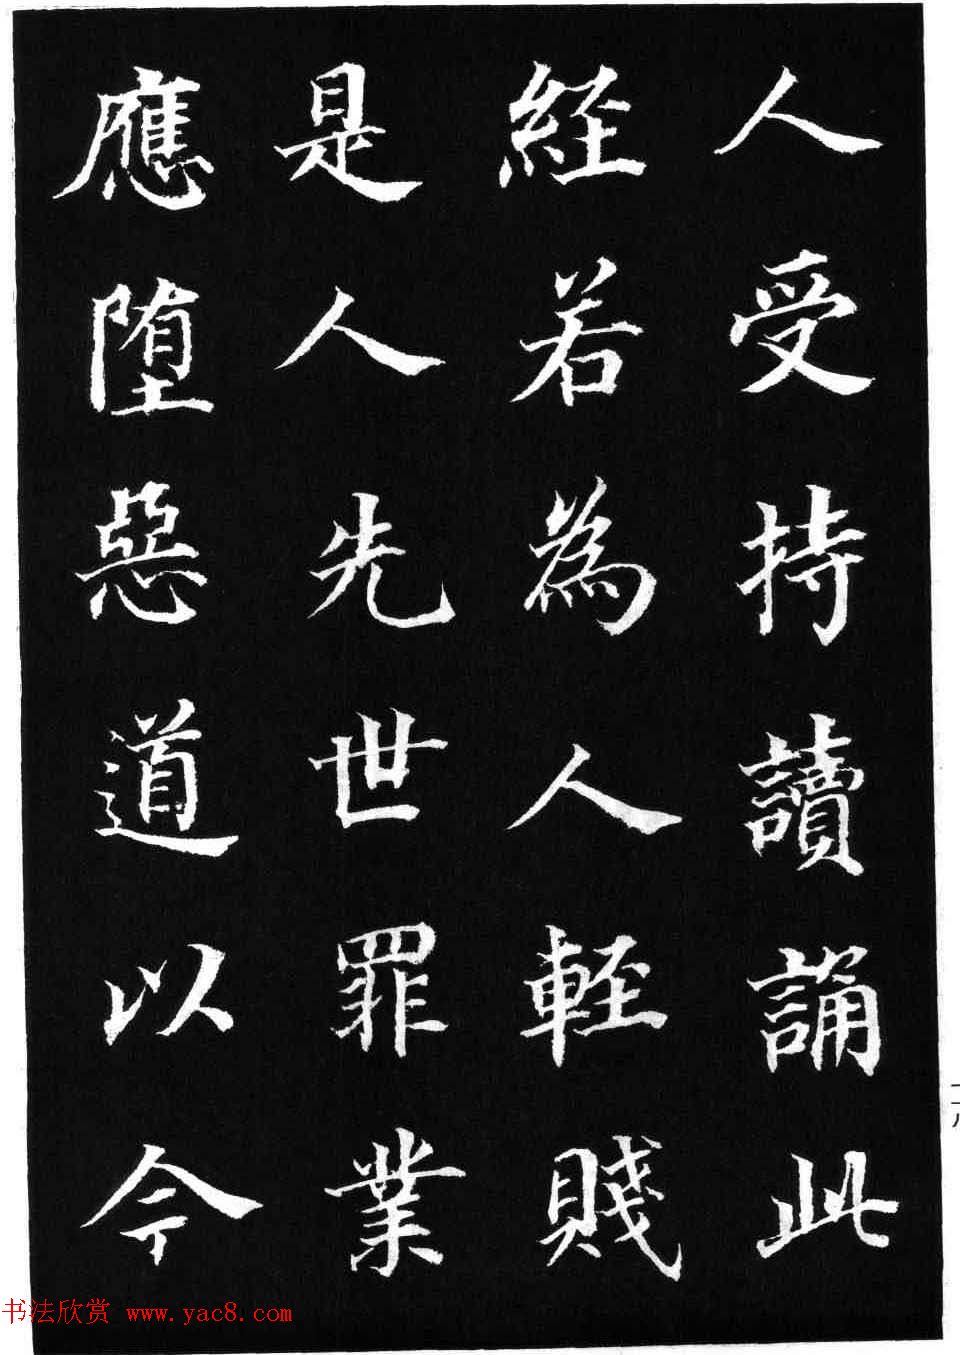 人受持讀誦此
経若為人軽賤
是人先世罪業
應堕惡道以今
二八
书法欣赏 www.yac8.com